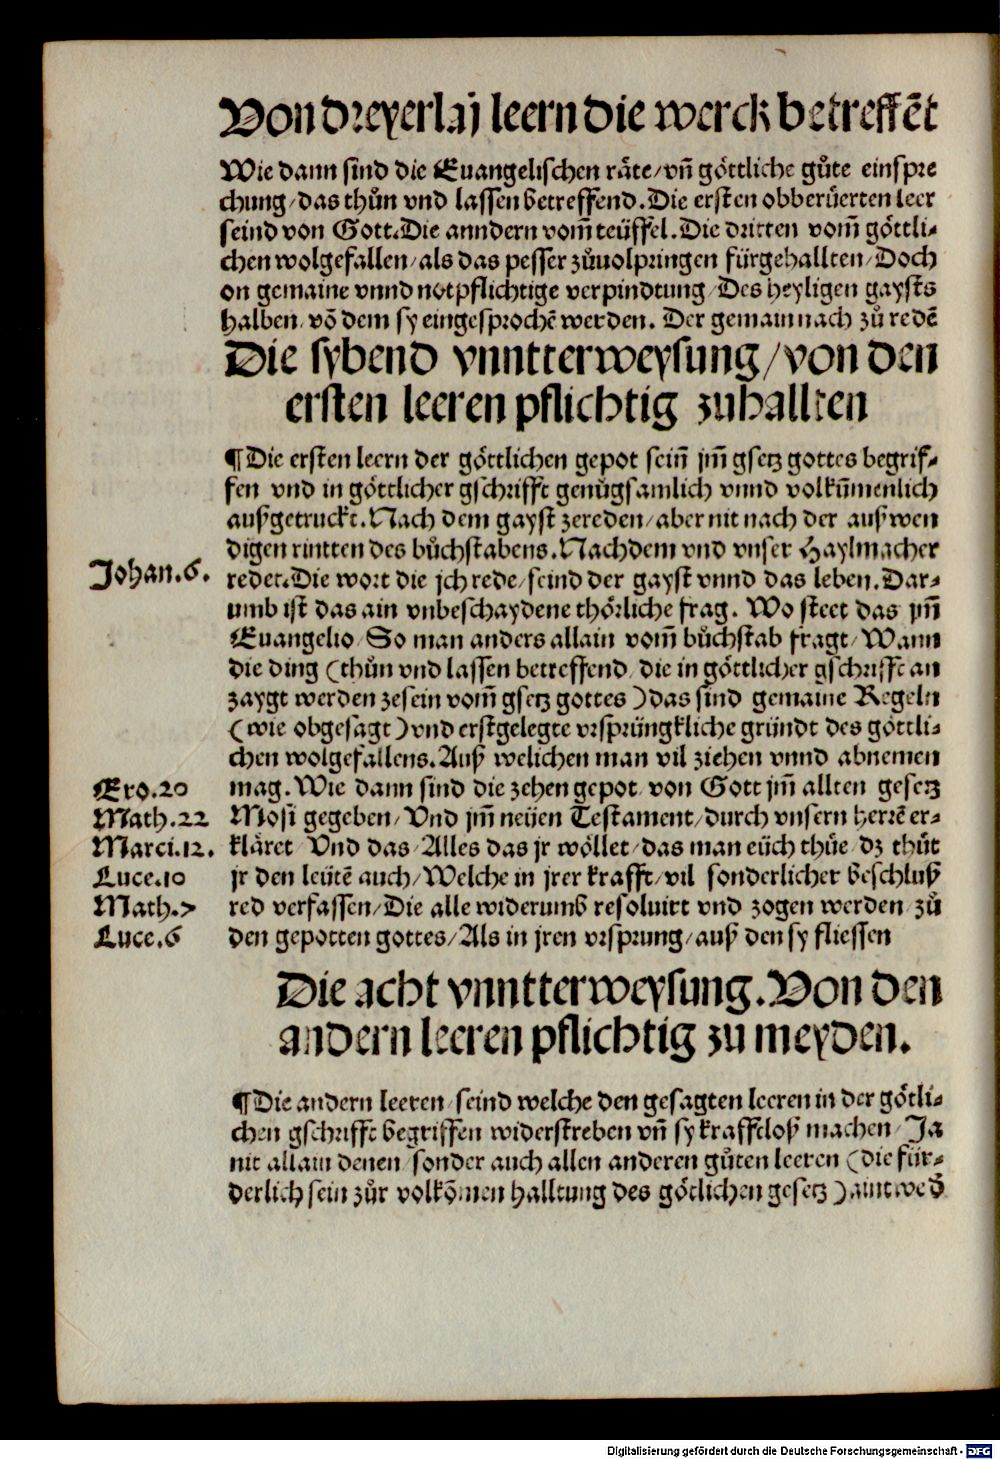 Von dreyerlaj leern die werck betreffēt
Wie dann sind die Euangelischen räte/ vn̄ göttliche gůte einspre
chung/ das thůn vnd lassen betreffend. Die ersten obberüerten leer
seind von Gott. Die anndern vom̄ teüffel. Die dritten vom̄ göttli-
chen wolgefallen/ als das pesser zůuolpringen fürgehallten/ Doch
on gemaine vnnd notpflichtige verpindtung/ Des heyligen gaysts
halben/ vō dem sy eingesprochē werden. Der gemain nach zů redē
Die sybend vnntterweysung/ von den
ersten leeren pflichtig zuhallten
¶ Die ersten leern der göttlichen gepot sein̄ jm̄ gsetz gottes begrif-
fen vnd in göttlicher gschrifft genůgsamlich vnnd volkūmenlich
außgetruckt. Nach dem gayst zereden/ aber nit nach der außwen
digen rintten des bůchstabens. Nachdem vnd vnser Haylmacher
Johan. 6. redet. Die wort die jch rede/ seind der gayst vnnd das leben. Dar-
umb ist das ain vnbeschaydene thörliche frag. Wo steet das jm̄
Euangelio/ So man anders allain vom̄ bůchstab fragt/ Wann
die ding (thůn vnd lassen betreffend/ die in göttlicher gschrifft an
zaygt werden zesein vom̄ gsetz gottes) das sind gemaine Regeln
(wie obgesagt) vnd erstgelegte vrsprüngkliche gründt des göttli-
chen wolgefallens. Auß welichen man vil ziehen vnnd abnemen
Exo. 20 mag. Wie dann sind die zehen gepot/ von Gott jm̄ allten gesetz
Math. 22 Mosi gegeben/ Vnd jm̄ neijen Testament/ durch vnsern herrē er-
Marci. 12. kläret Vnd das/ Alles das jr wöllet/ das man eüch thüe/ dz thůt
Luce. 10 jr den leütē auch/ Welche in jrer krafft/ vil sonderlicher beschluß
Math. 7 red verfassen/ Die alle widerumb resoluirt vnd zogen werden/ zů
Luce. 6 den gepotten gottes/ Als in jren vrsprung/ auß den sy fliessen
Die acht vnntterweysung. Von den
andern leeren pflichtig zu meyden.
¶ Die andern leeren/ seind welche den gesagten leeren in der götli-
chen gschrifft begriffen widerstreben vn̄ sy krafftloß machen/ Ja
nit allain denen/ sonder auch allen anderen gůten leeren (die für-
derlich sein zůr volkōmen halltung des götlichen gesetz) aintwed̄
Digitalisierung gefördert durch die Deutsche Forschungsgemeinschaft - DFG